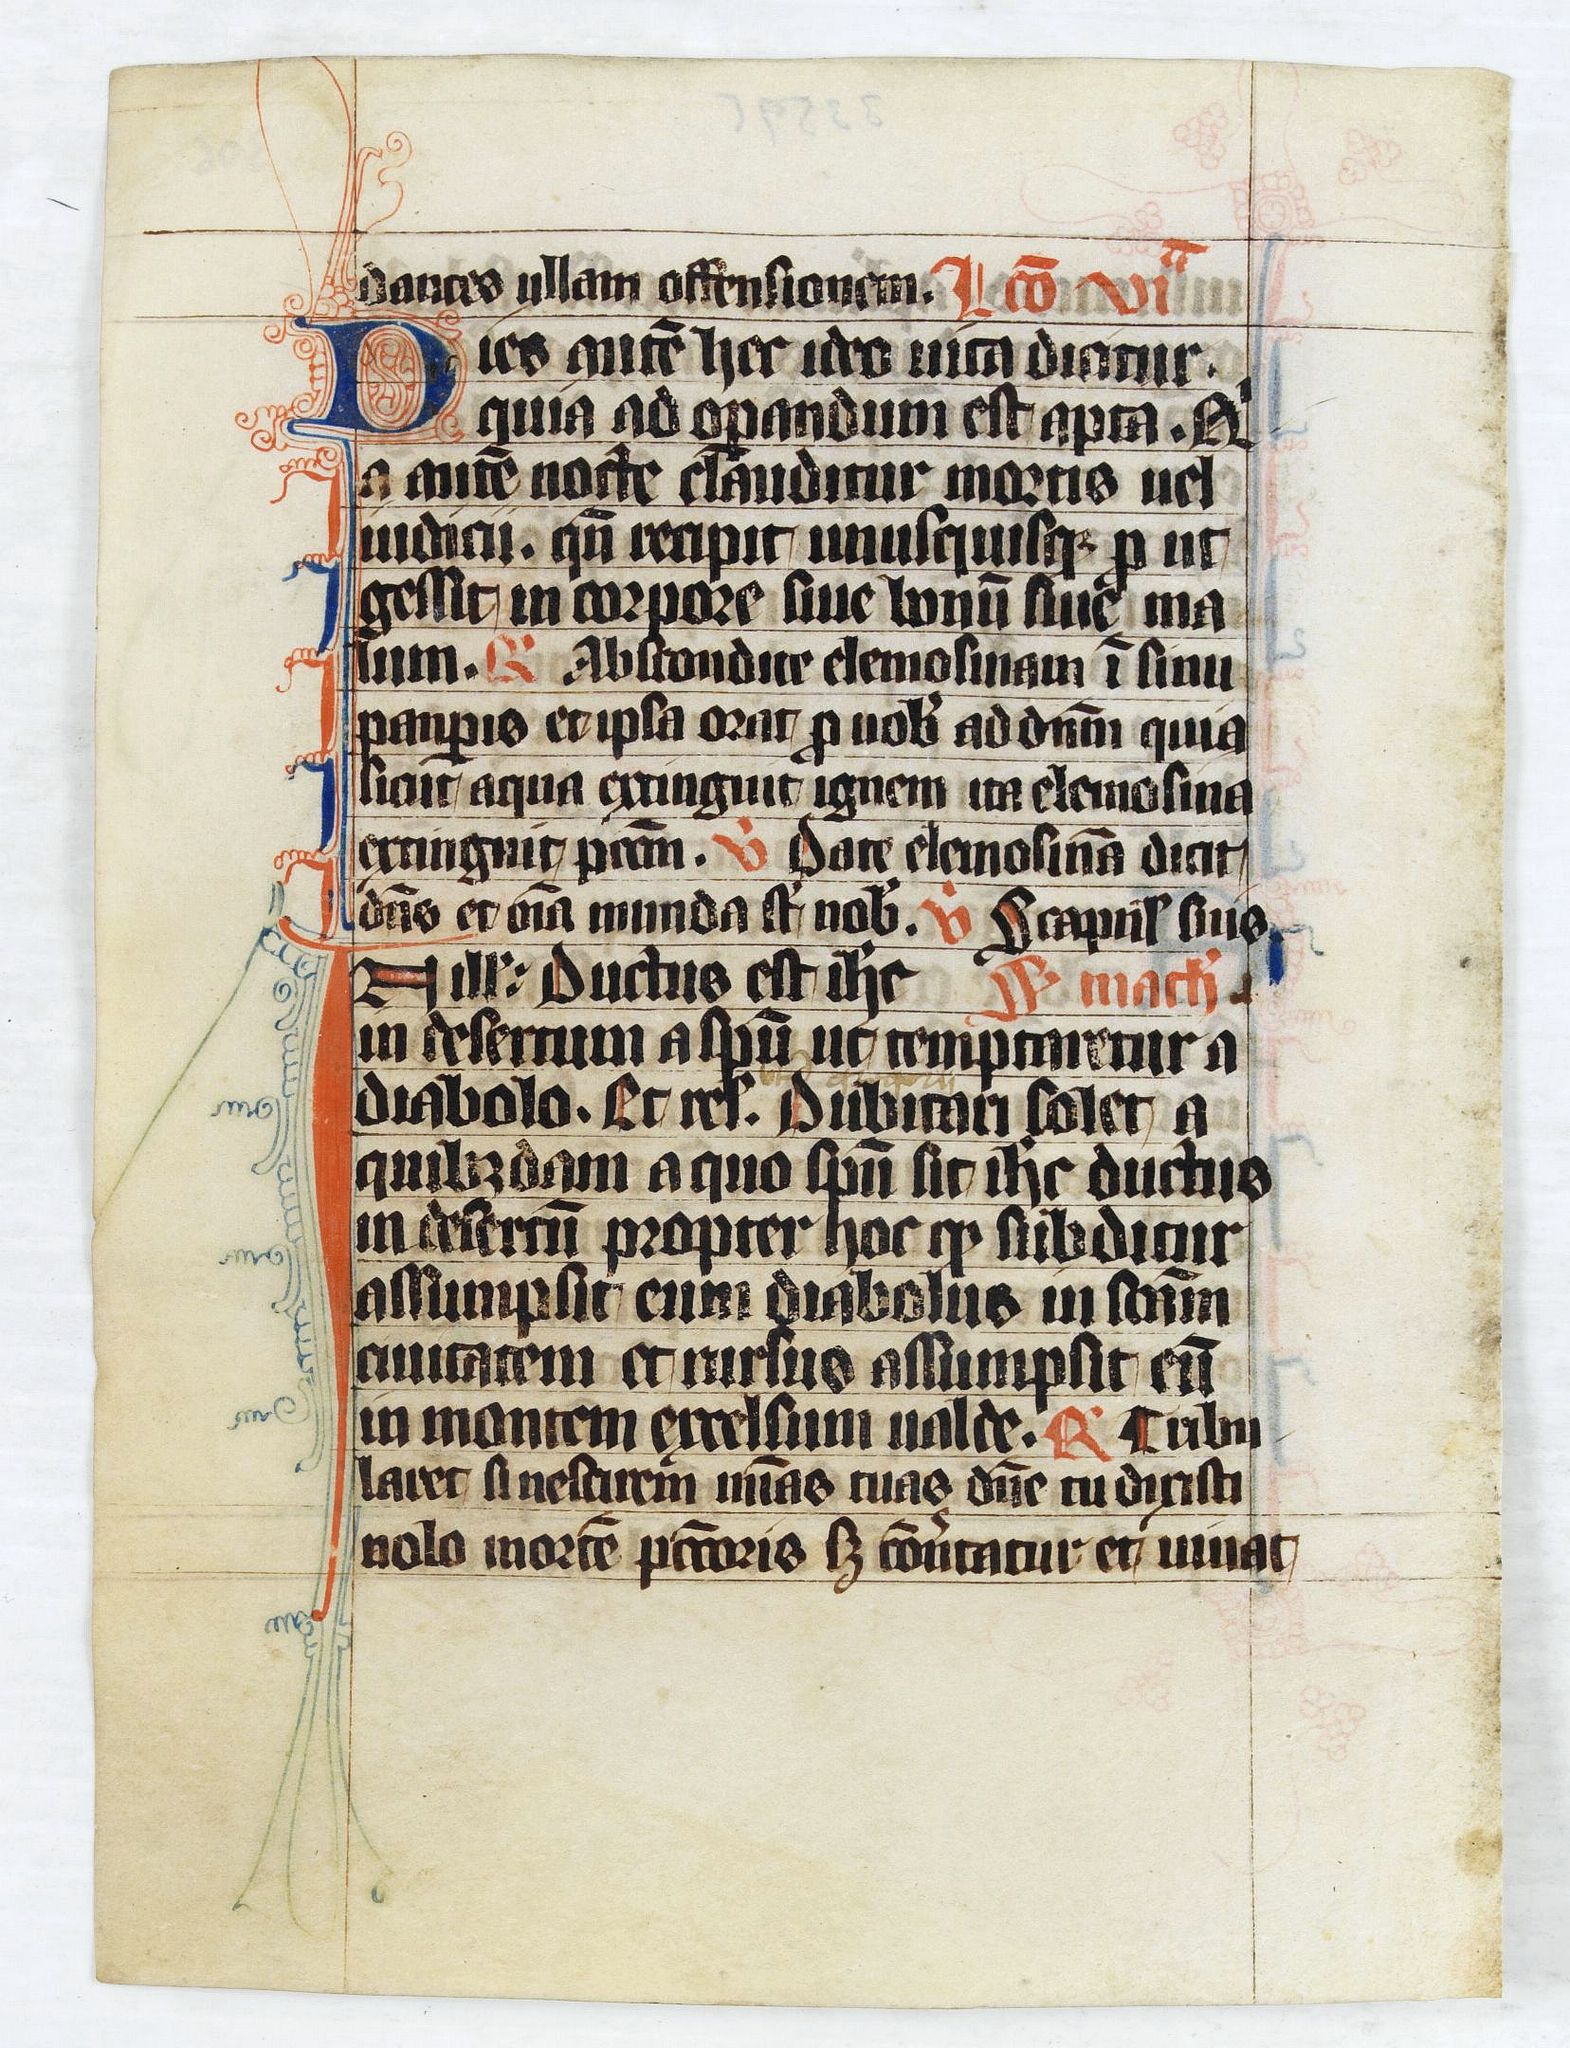 dantes ullam offensionem. Lc̄o vī
Dies autē hec ideo uita dicitur.
quia ad oꝑandum est apta. Q
a autē nocte clauditur mortis uel
iudicii. qn̄ recipit unusquisqꝫ ꝓ ut
gessit in corpore siue bonū siue ma
lum. R Abscondite elemosinam ī sinu
pauꝑis et ipsa orat ꝓ uob ad dn̄m quia
sicut aqua extinguit ignem ita elemosina
extinguit pctm̄. V Date elemosinā dicit
dn̄s et oīa munda st uob. V Scapul suis
In ill: Ductus est ih̄c S math
in desertum a spū ut temptaretur a
diabolo. Et rel. Dubitari solet a
quibꝫdam a quo spū sit ih̄c ductus
in desertū propter hoc ꝙ subditur
assumpsit eum diabolus in scām
ciuitatem et rursus assumpsit eū
in montem excelsum ualde. R Tribu
larer si nescirem mīas tuas dn̄e tu dixisti
nolo mortē pctōris sꝫ cōuertatur et uiuat